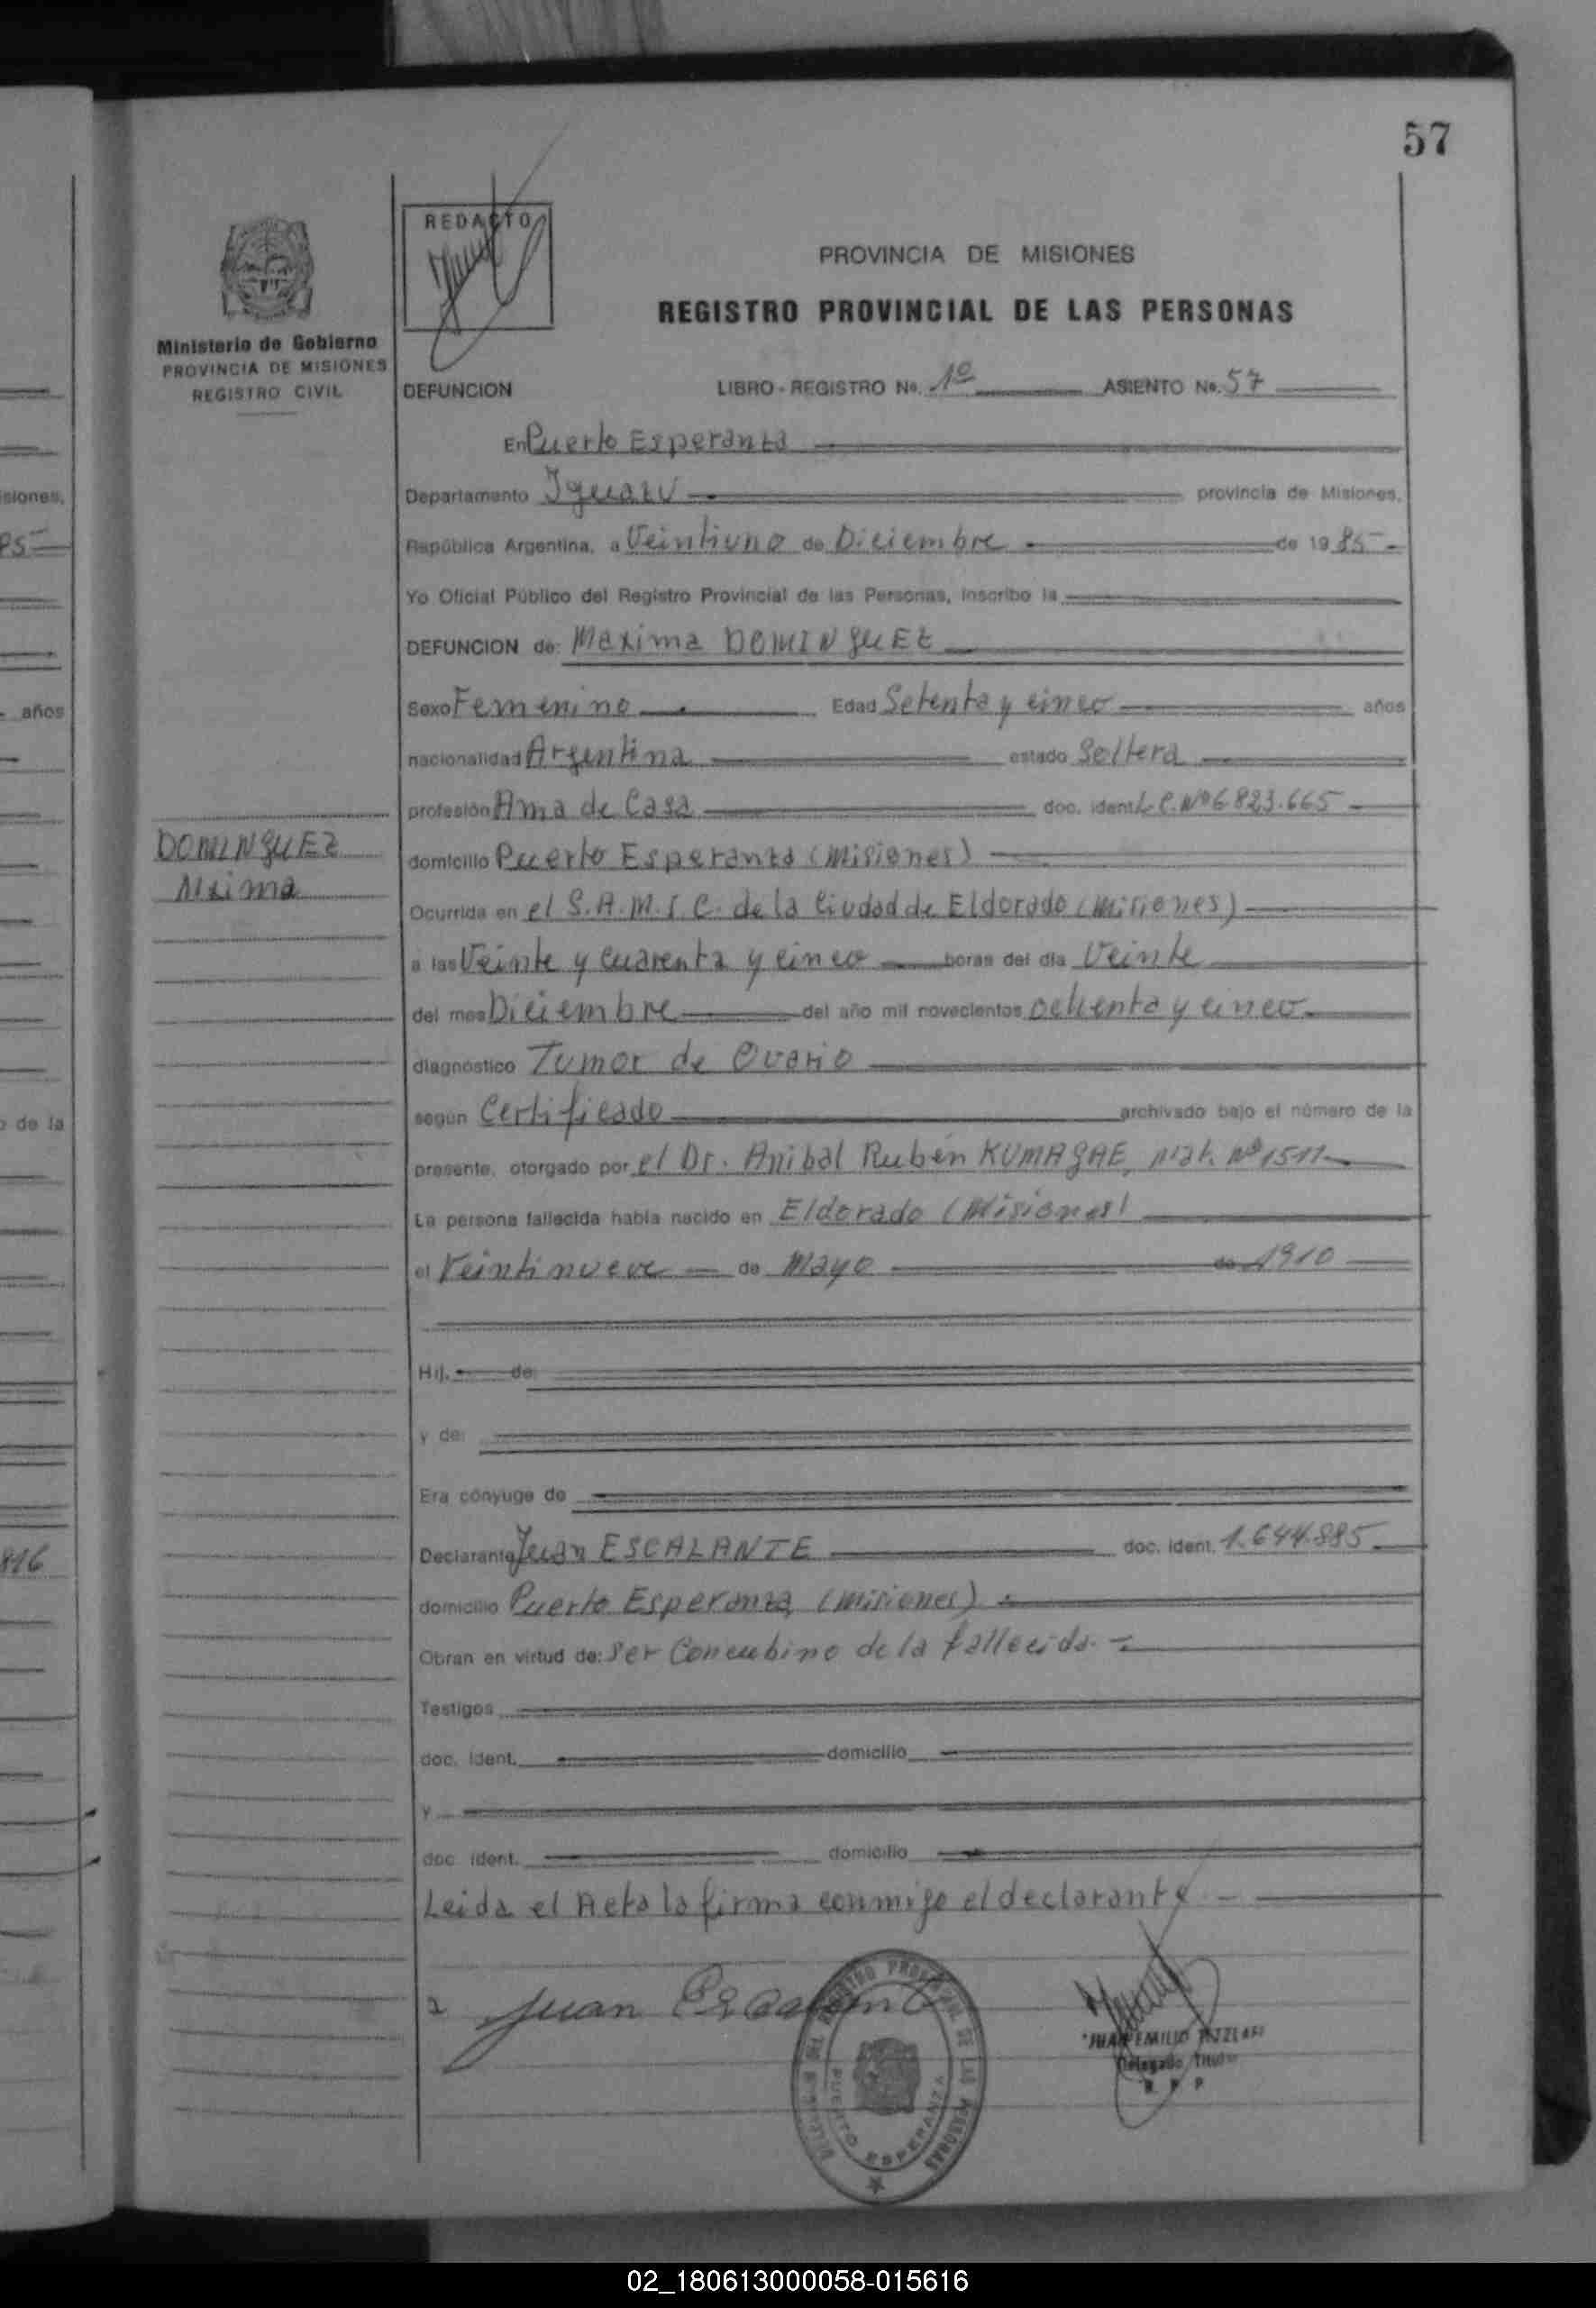 57
REDACTO
PROVINCIA DE MISIONES
REGISTRO PROVINCIAL DE LAS PERSONAS
Ministerio de Gobierno
PROVINCIA DE MISIONES
REGISTRO CIVIL
DEFUNCION LIBRO - REGISTRO No. 1º ASIENTO No. 57
En Puerto Esperanza
Departamento Iguazu provincia de Misiones,
República Argentina, a Veintiuno de Diciembre de 1985
Yo Oficial Público del Registro Provincial de las Personas, inscribo la
DEFUNCION de: Maxima DOMINGUEZ
Sexo Femenino Edad Setenta y cinco años
nacionalidad Argentina estado Soltera
profesión Ama de Casa doc. ident. L.C. Nº 6.823.665
DOMINGUEZ
Mxima
domicilio Puerto Esperanza (Misiones)
Ocurrida en el S.A.M.I.C. de la Ciudad de Eldorado (Misiones)
a las Veinte y cuarenta y cinco horas del día Veinte
del mes Diciembre del año mil novecientos Ochenta y cinco
diagnóstico Tumor de Ovario
según Certificado archivado bajo el número de la
presente, otorgado por el Dr. Anibal Rubén KUMAGAE, Mat. Nº 1511
La persona fallecida había nacido en Eldorado (Misiones)
el Veintinueve de Mayo de 1910
Hij. de:
y de:
Era cónyuge de
Declarante Juan ESCALANTE doc. ident. 1.644.885
domicilio Puerto Esperanza (Misiones)
Obran en virtud de: Ser Concubino de la fallecida.
Testigos
doc. ident. domicilio
y
doc. ident. domicilio
Leida el Acta la firma conmigo el declarante
Juan Escalante
JUAN EMILIO
Delegado Titular
R. P. P.
REGISTRO PROVINCIAL DE LAS PERSONAS
PUERTO ESPERANZA
isiones,
85
años
o de la
816
02_180613000058-015616